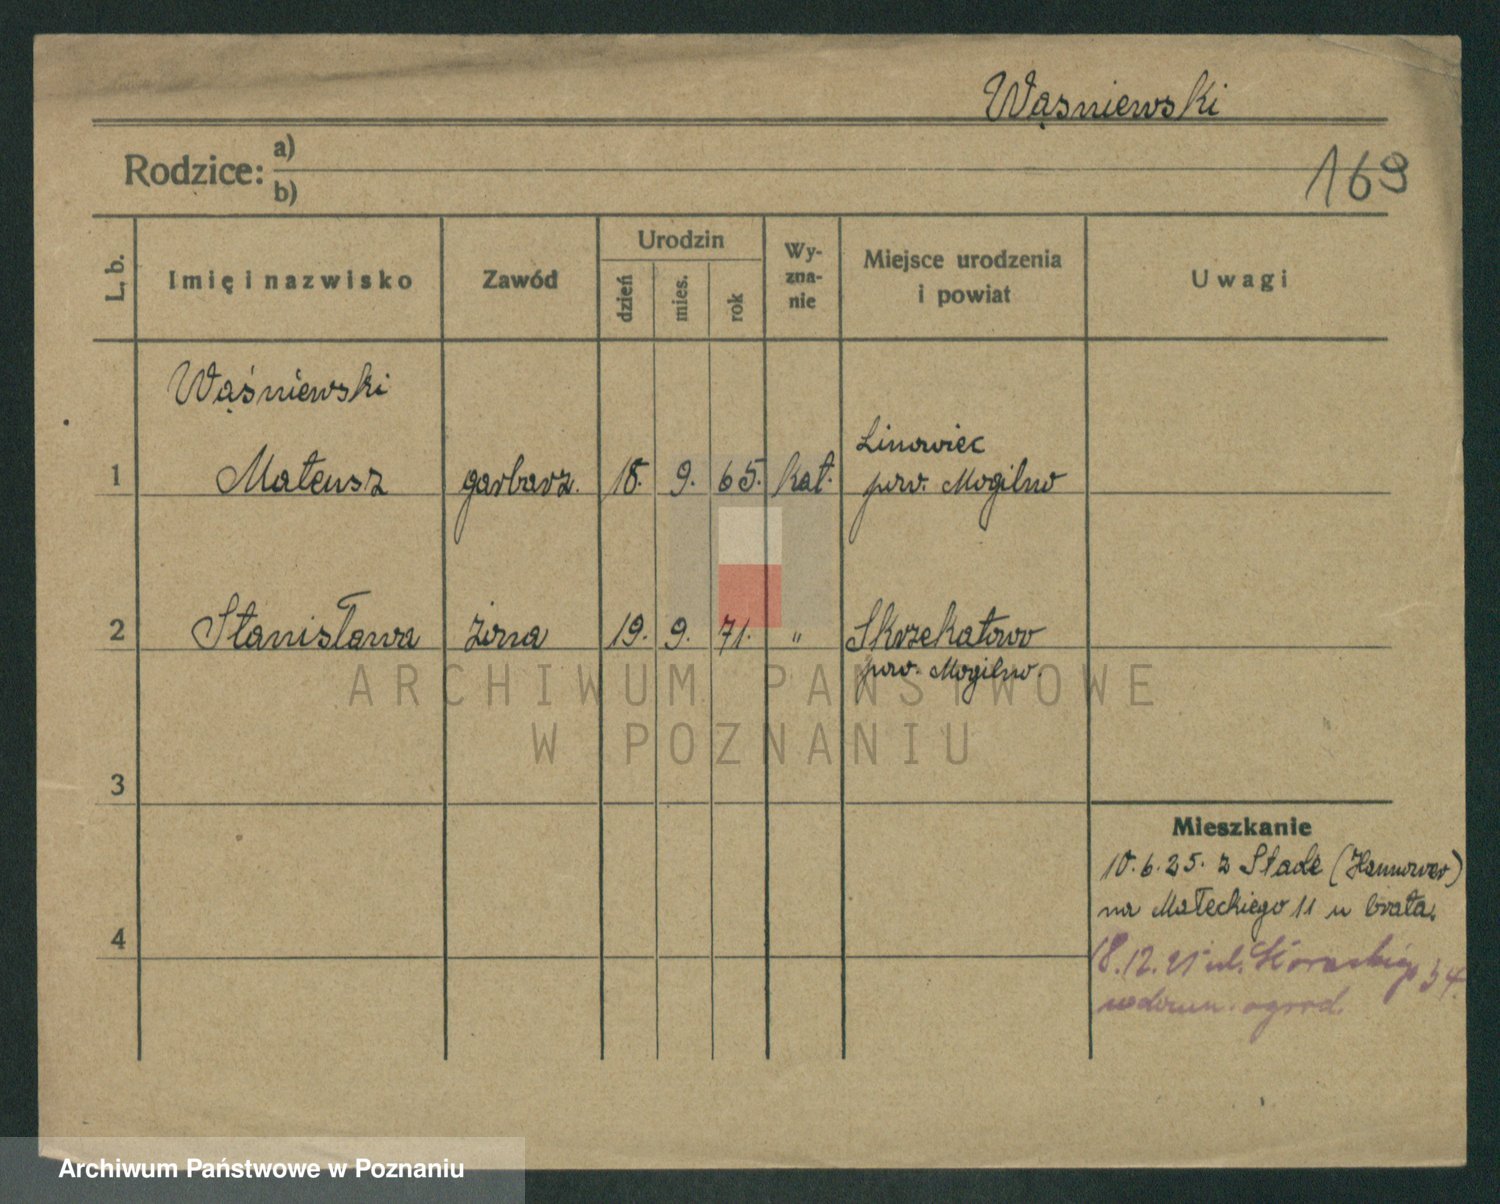 Wąsniewski
169
Rodzice: a)
b)
L. b.
Imię i nazwisko
Zawód
Urodzin
dzień
mies.
rok
Wy-
zna-
nie
Miejsce urodzenia
i powiat
Uwagi
Wąśniewski
1 Mateusz garbarz. 18. 9. 65. kat. Linowiec
pow. Mogilno
2 Stanisława żona 19. 9. 71. " Skrzekatowo
pow. Mogilno.
3
4
Mieszkanie
10.6.25. z Stade (Hannover)
na Małeckiego 11 u brata.
18.12.25 ul. 34.
ogrod.
ARCHIWUM PAŃSTWOWE
W POZNANIU
Archiwum Państwowe w Poznaniu